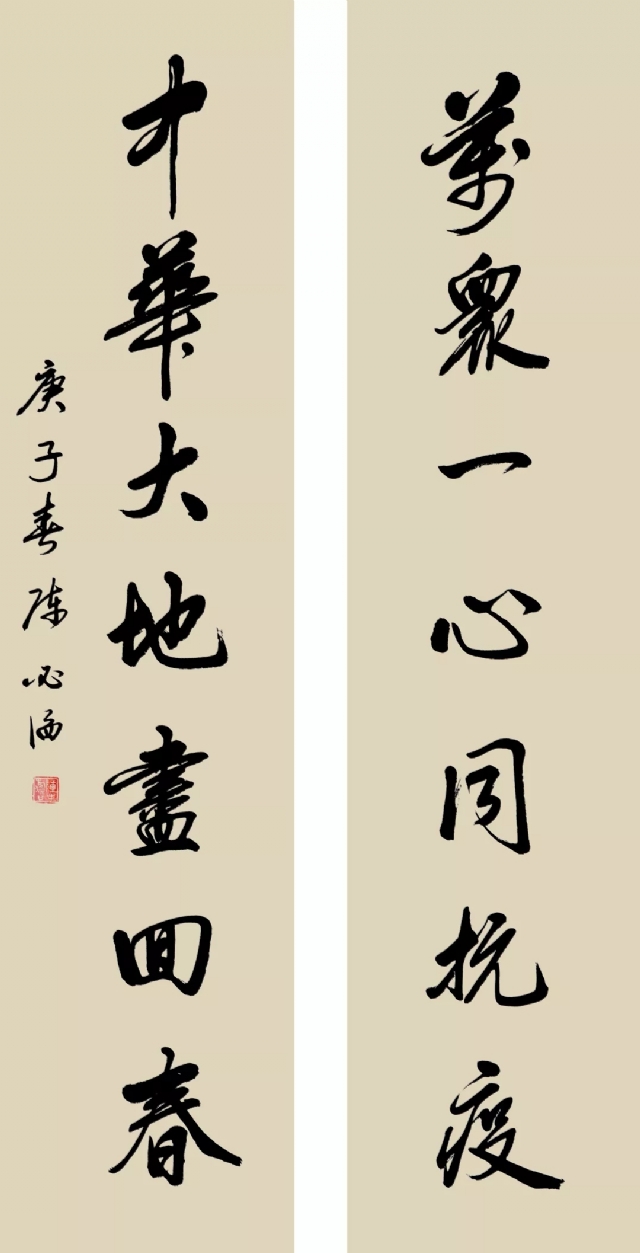 萬眾一心同抗疫
中華大地盡回春
庚子春陈必滔